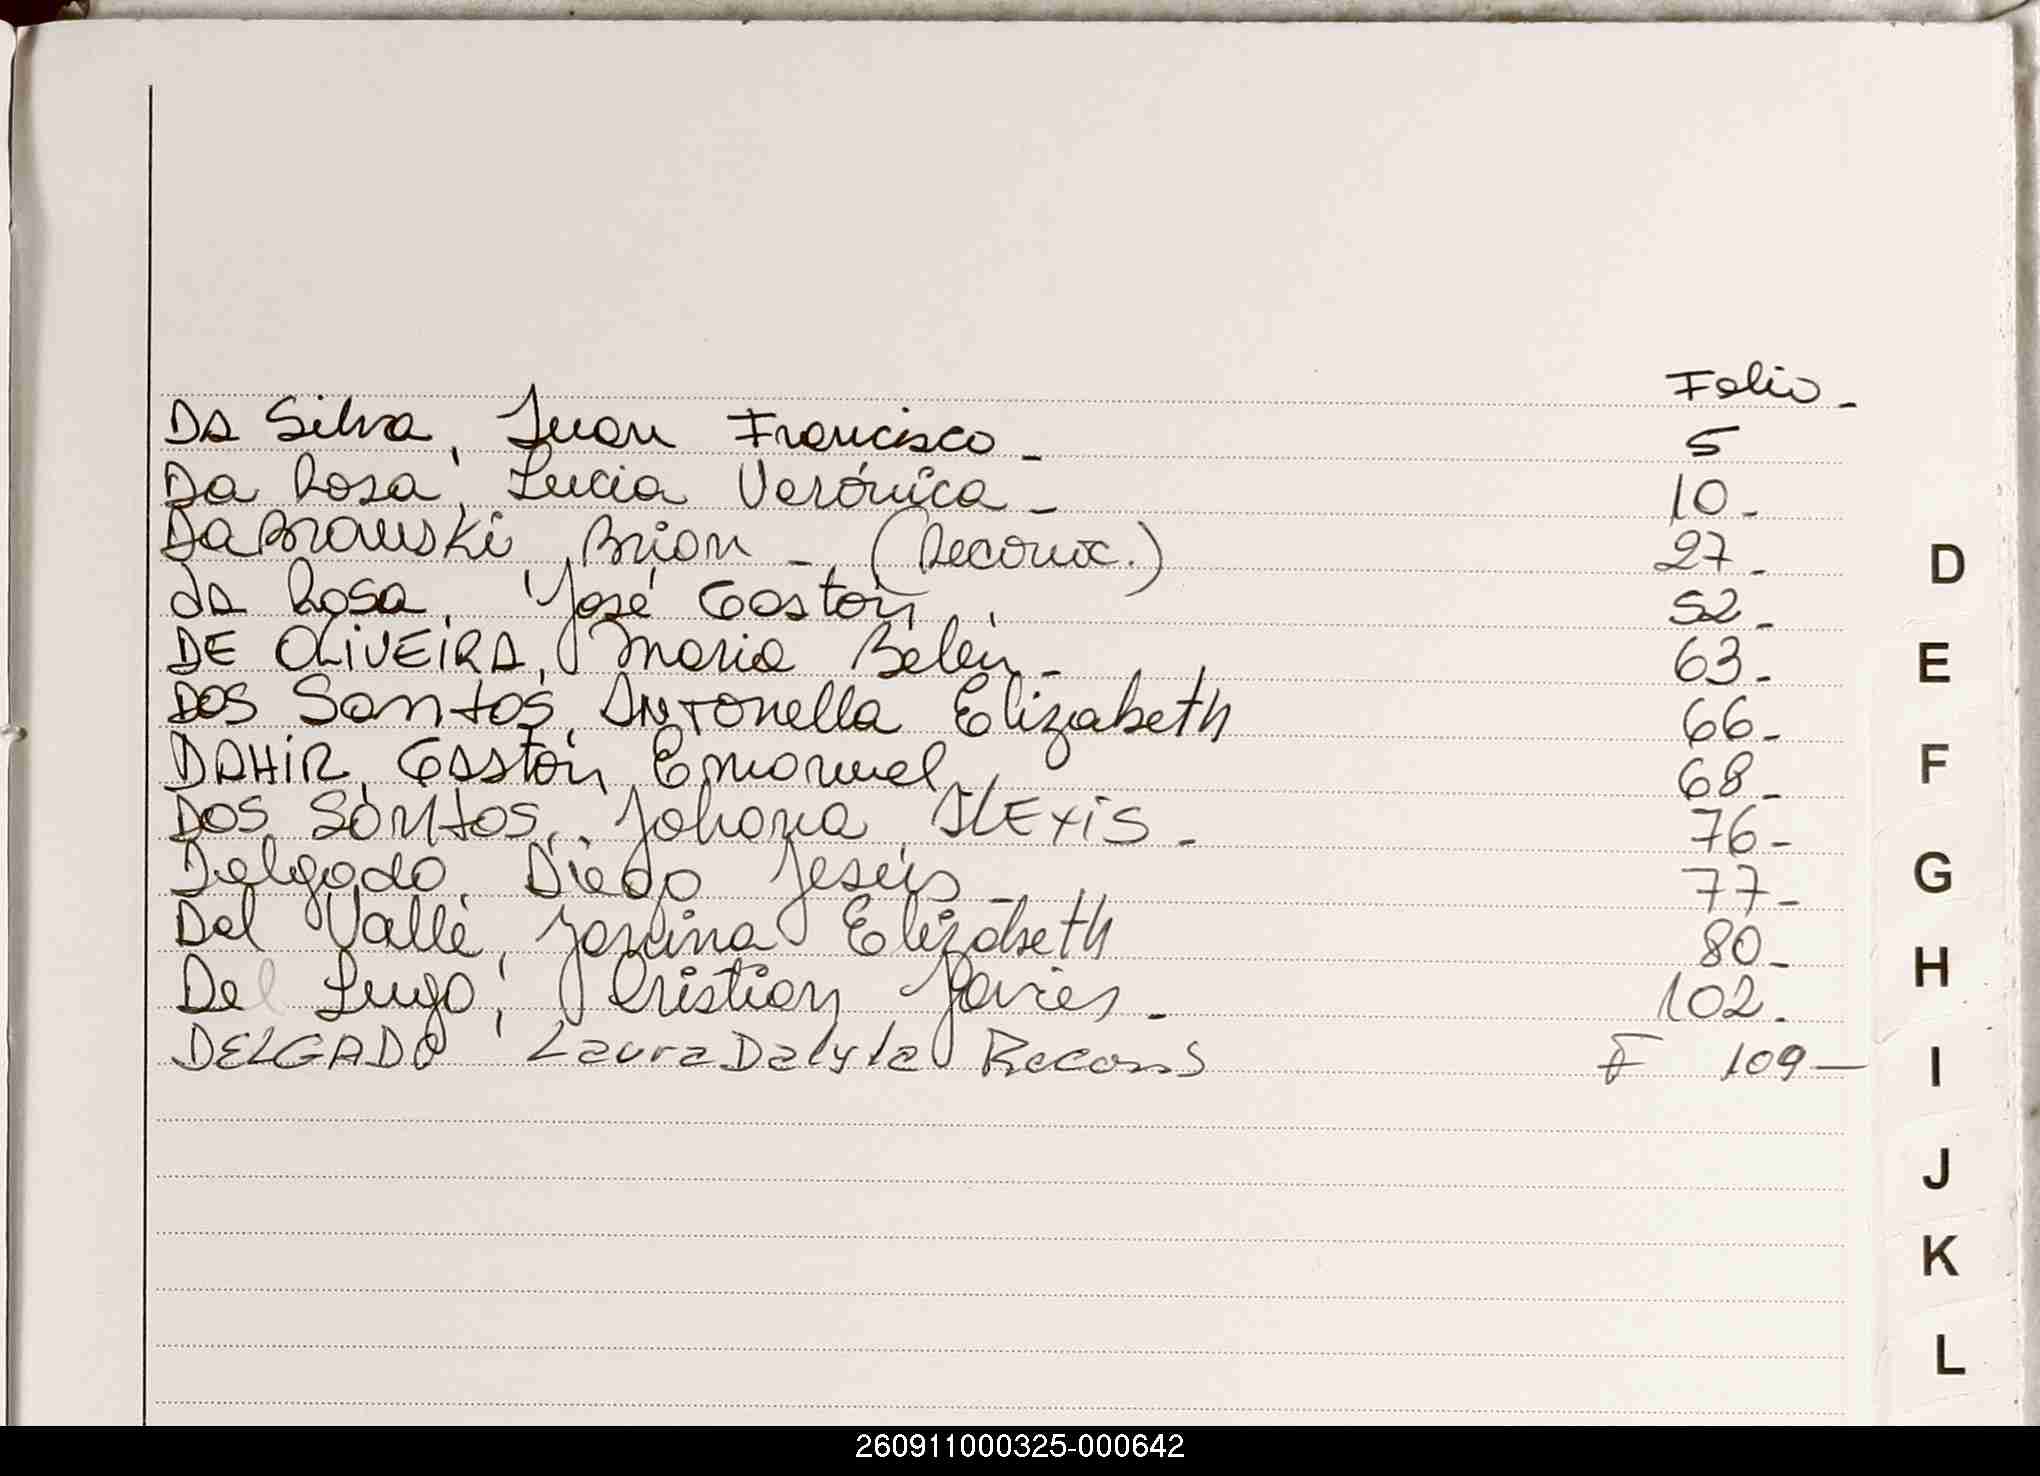 Folio -
DA Silva, Juan Francisco - 5
Da Rosa, Lucia Verónica - 10 -
DaBrowski, Brian - (Reconoc.) 27 -
dA Rosa, José Gastón 52 -
DE OLiVEiRA, Maria Belén - 63 -
DOS Santos, Antonella Elizabeth 66 -
DAHiR, GAstón Emanuel 68 -
DOS Santos, Johana ALExiS - 76 -
Delgado, Diego Jesús - 77 -
Del Valle, Elizabeth 80 -
Del Lugo, Cristian Javier - 102 -
DELGADO Laura Dalyla Recons F 109 —
D
E
F
G
H
I
J
K
L
260911000325-000642